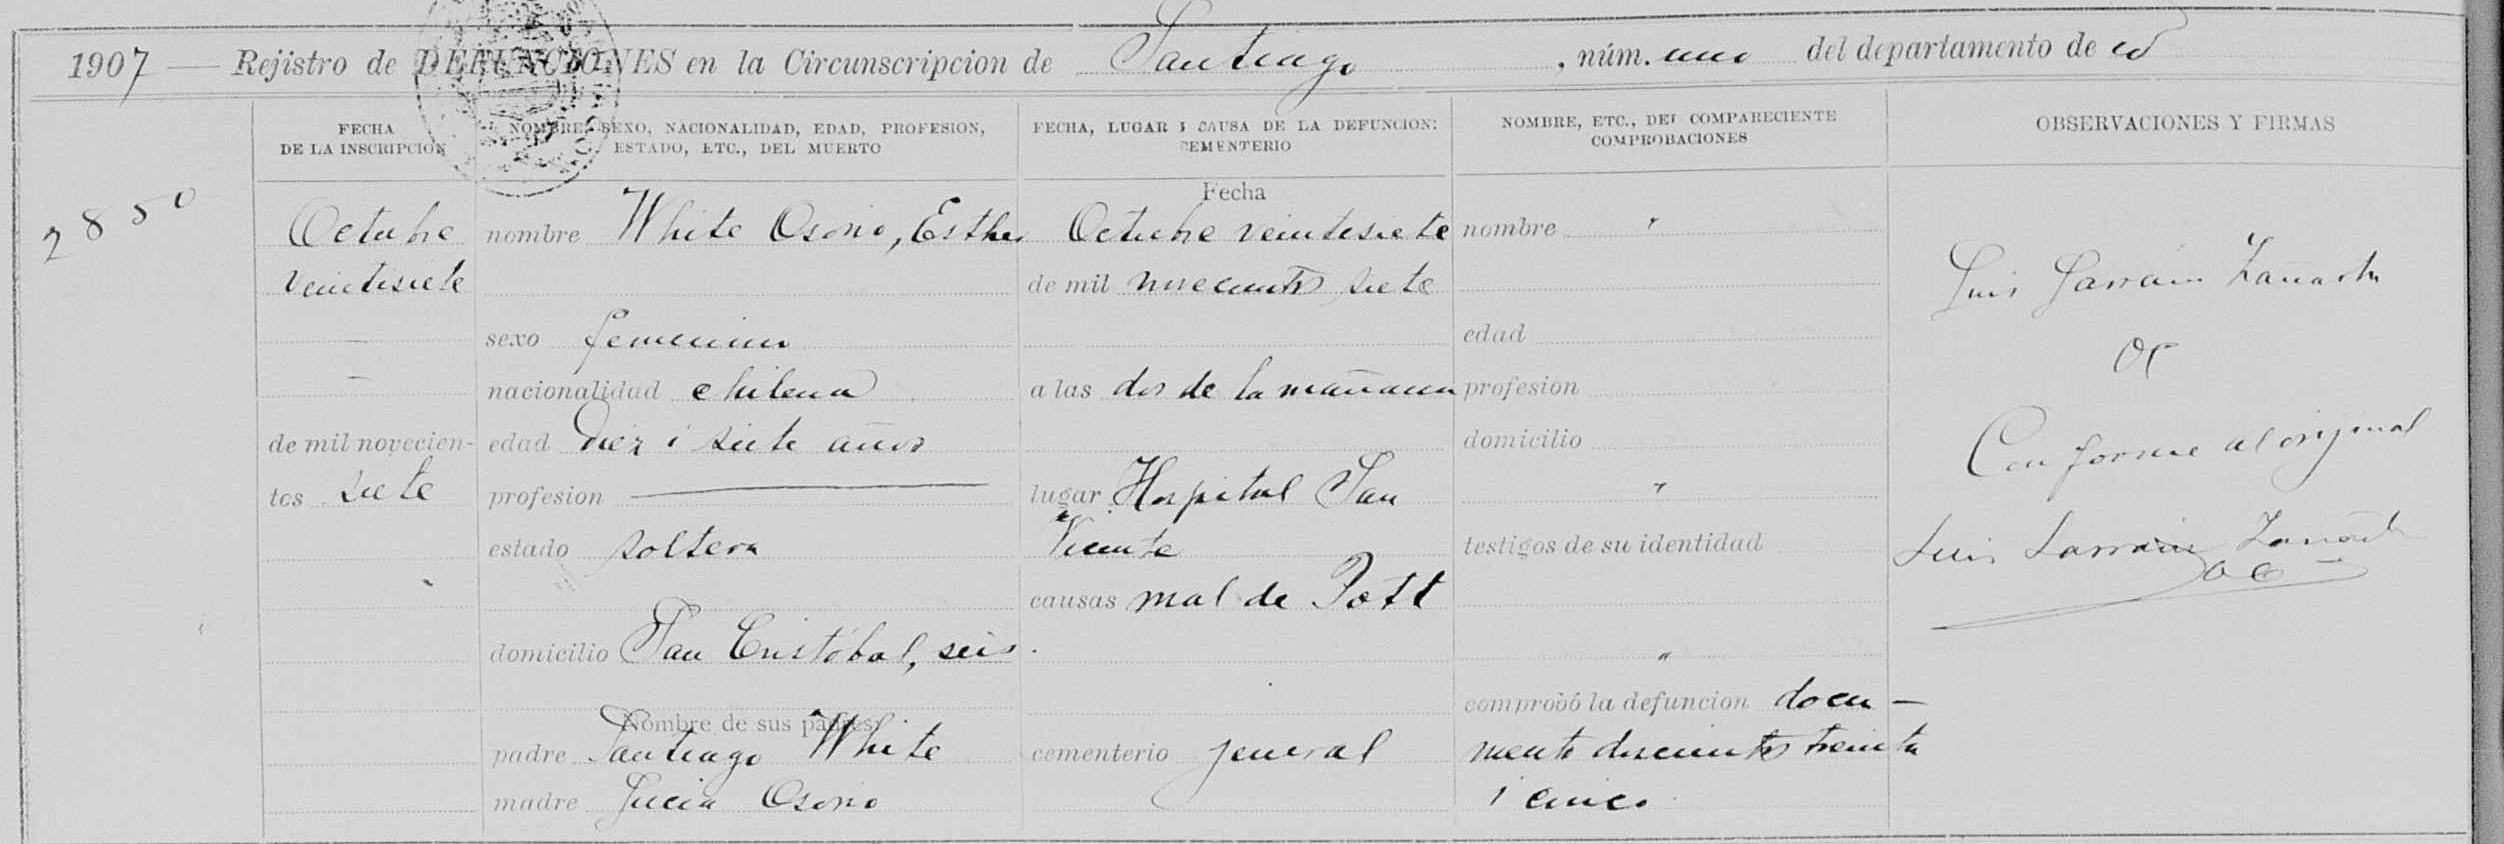 1907 — Rejistro de DEFUNCIONES en la Circunscripcion de Santiago, núm. uno del departamento de id
FECHA
DE LA INSCRIPCION
NOMBRE, SEXO, NACIONALIDAD, EDAD, PROFESION,
ESTADO, ETC., DEL MUERTO
FECHA, LUGAR I CAUSA DE LA DEFUNCION:
CEMENTERIO
NOMBRE, ETC., DEL COMPARECIENTE
COMPROBACIONES
OBSERVACIONES Y FIRMAS
2850
Octubre
veintisiete
de mil novecien-
tos siete
nombre White Osorio, Esther
sexo femenino
nacionalidad chilena
edad diez i siete años
profesion ———
estado soltera
domicilio San Cristóbal, seis.
Nombre de sus padres:
padre Santiago White
madre Lucia Osorio
Fecha
Octubre veintisiete
de mil novecientos siete
a las dos de la mañana
lugar Hospital San
Vicente
causas mal de Pott
cementerio jeneral
nombre "
edad
profesion
domicilio
"
testigos de su identidad
"
comprobó la defuncion docu-
mento doscientos treinta
i cinco
Luis Larrain Zañartu
OC
Conforme al original
Luis Larrain Zañartu
OC